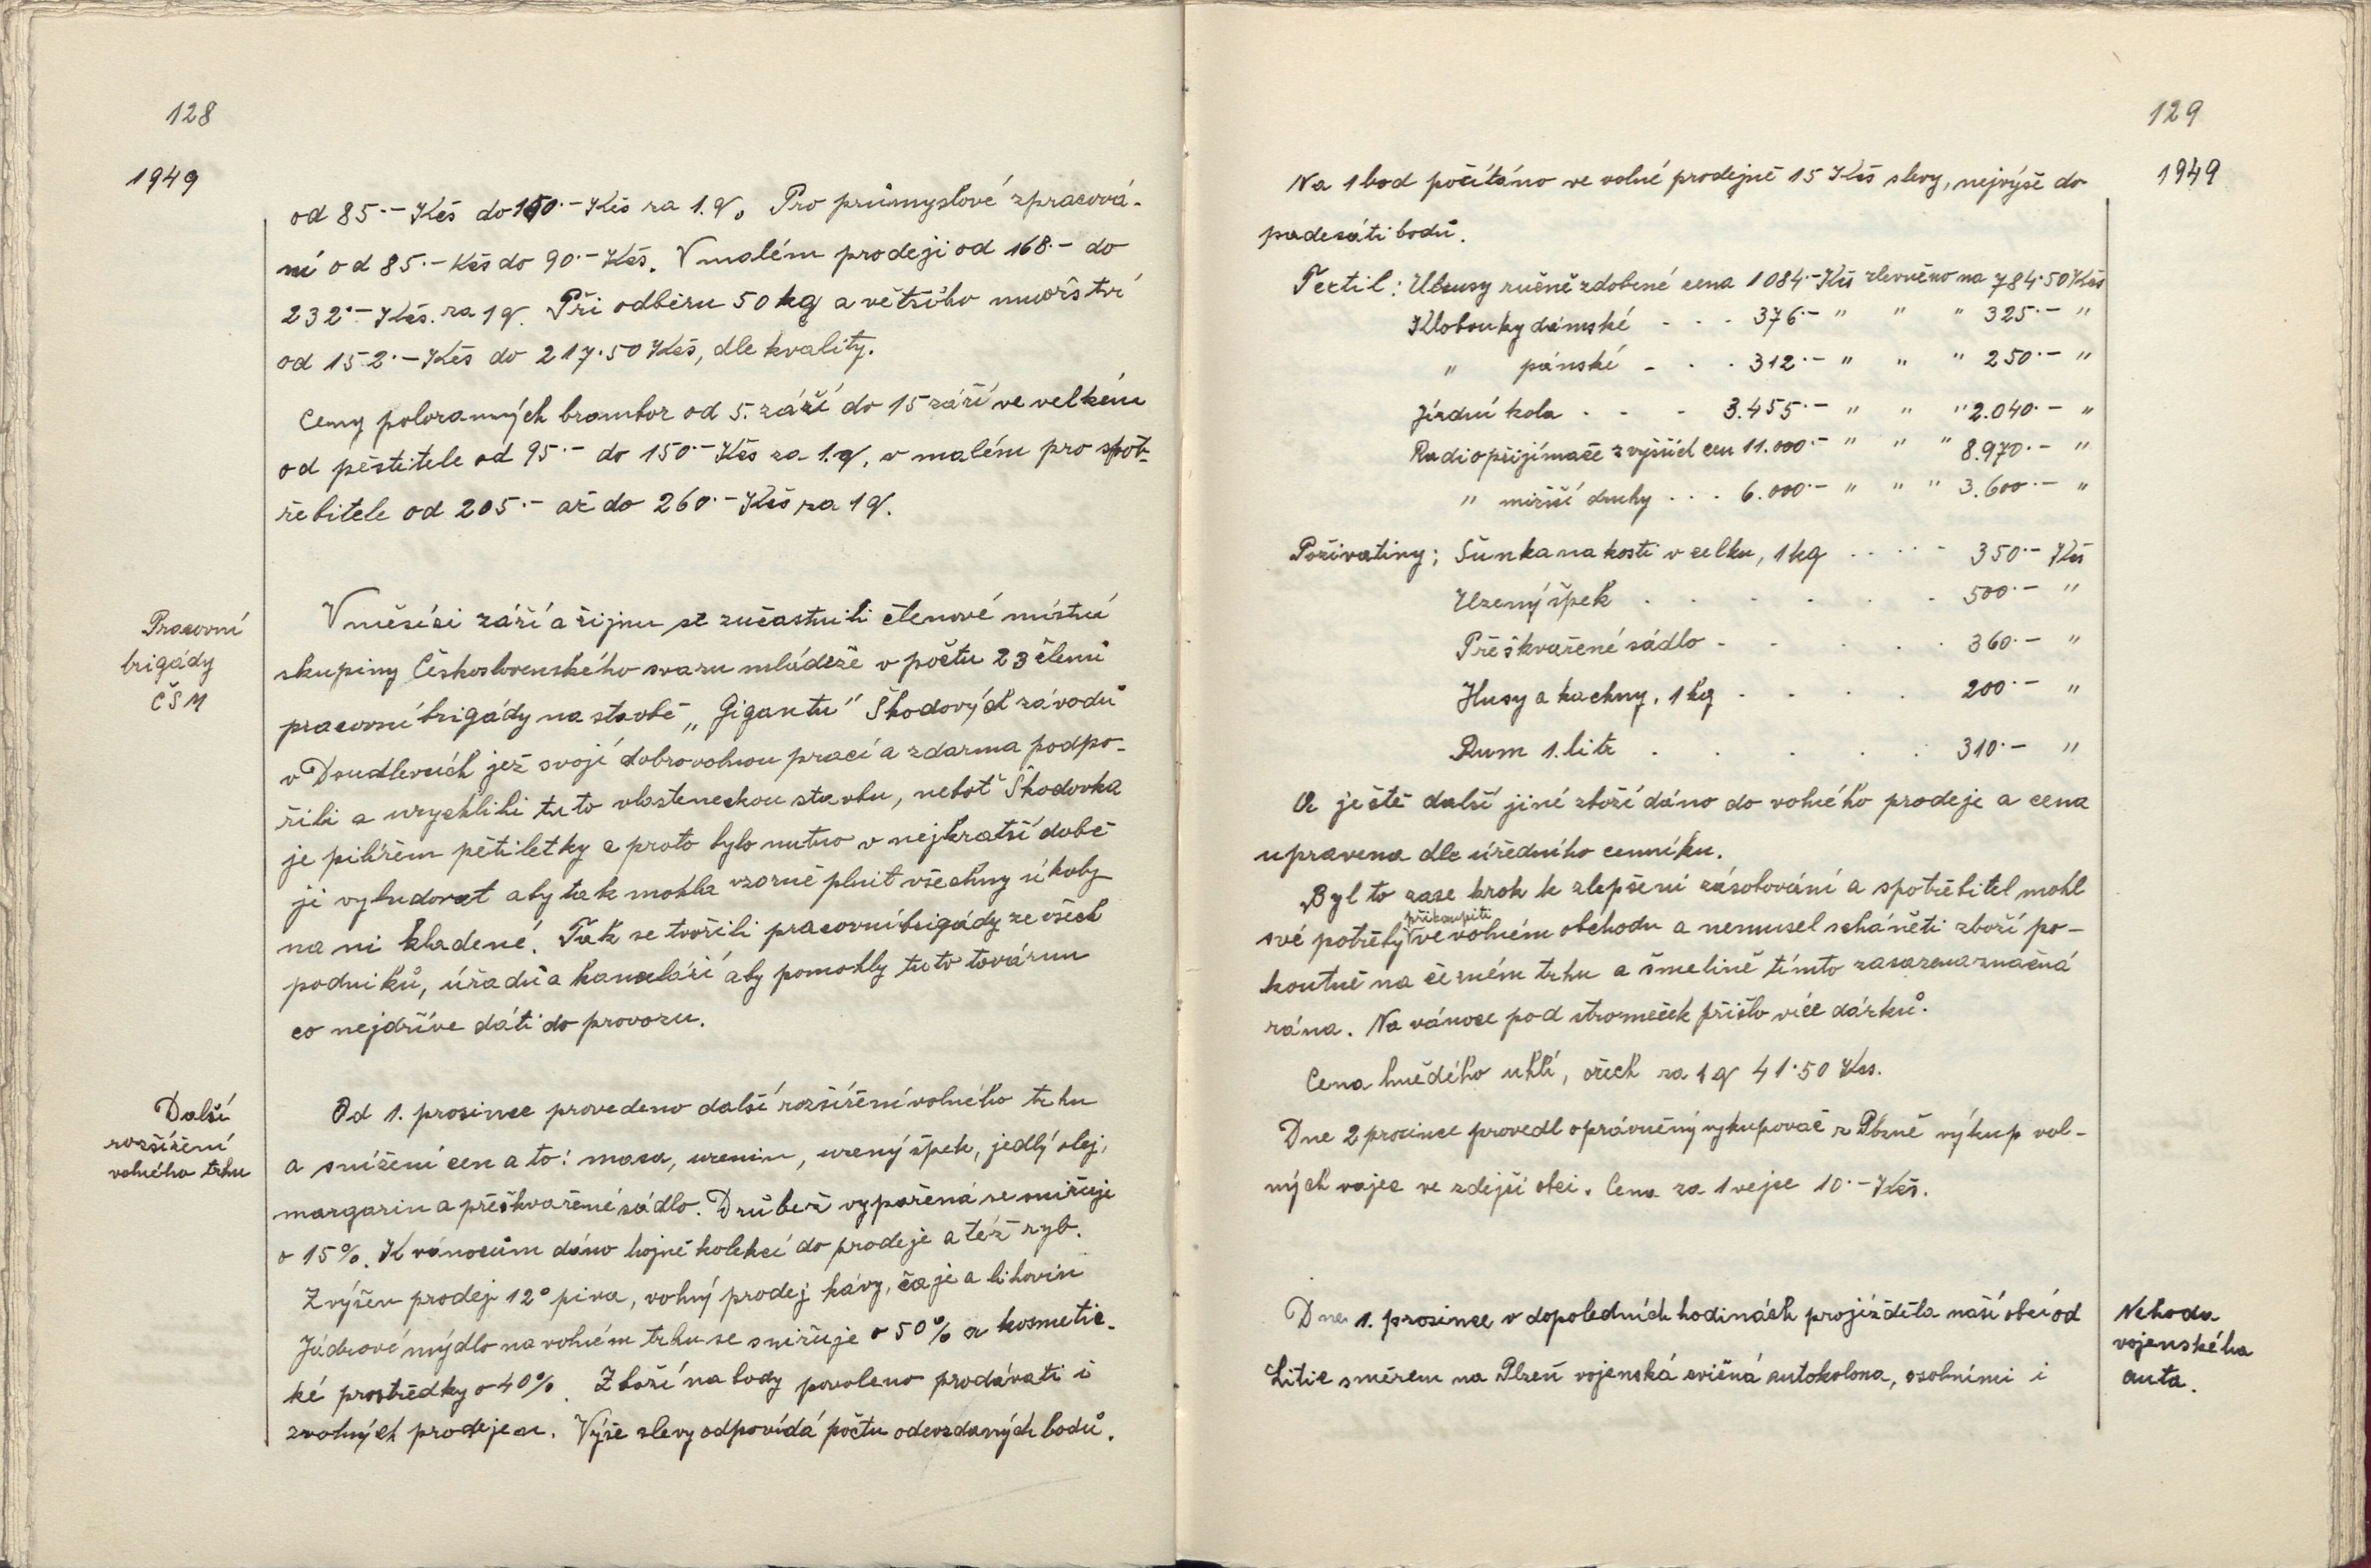 128
1949
od 85.- Kčs do 100.- Kčs za 1.q. Pro průmyslové zpracová-
ní od 85.- Kčs do 90.- Kčs. V malém prodeji od 168.- do
232.- Kčs. za 1 q. Při odběru 50 kg a většího množství
od 152.- Kčs do 217.50 Kčs, dle kvality.
Ceny poloranných brambor od 5. září do 15 září ve velkém
od pěstitele od 95.- do 150.- Kčs za 1.q, v malém pro spot-
řebitele od 205.- až do 260.- Kčs za 1 q.
Pracovní
brigády
ČSM
V měsíci září a říjnu se zúčastnili členové místní
skupiny Československého svazu mládeže v počtu 23 členů
pracovní brigády na stavbě „Gigantu" Škodových závodů
v Doudlevcích jež svojí dobrovolnou prací a zdarma podpo-
řili a urychlili tuto vlasteneckou stavbu, neboť Škodovka
je pilířem pětiletky a proto bylo nutno v nejkratší době
ji vybudovat aby tak mohla vzorně plnit všechny úkoly
na ni kladené. Tak se tvořili pracovní brigády ze všech
podniků, úřadů a kanceláří aby pomohly tuto továrnu
co nejdříve dáti do provozu.
Další
rozšíření
volného trhu
Od 1. prosince provedeno další rozšíření volného trhu
a snížení cen a to: masa, uzenin, uzený špek, jedlý olej,
margarin a přeškvařené sádlo. Drůbež vypařená se snižuje
o 15%. K vánocům dáno hojně kolekcí do prodeje a též ryb.
Zvýšen prodej 12° piva, volný prodej kávy, čaje a lihovin
Jádrové mýdlo na volném trhu se snižuje o 50% a kosmetic-
ké prostředky o 40%. Zboží na body povoleno prodávati i
z volných prodejen. Výše slevy odpovídá počtu odevzdaných bodů.
129
1949
Na 1 bod počítáno ve volné prodejně 15 Kčs slevy, nejvýše do
padesáti bodů.
Textil: Ubrusy ručně zdobené cena 1084.- Kčs zlevněno na 784.50 Kčs
Klobouky dámské - - - 376.- " " " 325.- "
" pánské - - - 312.- " " " 250.- "
Jízdní kola - - - 3.455.- " " " 2.040.- "
Radiopřijímače z vyšších cen 11.000.- " " " 8.970.- "
" nižší druhy . . . 6.000.- " " " 3.600.- "
Poživatiny: Šunka na kosti v celku, 1 kg . . . . - 350.- Kčs
Uzený špek . . . . . . 500.- "
Přeškvařené sádlo - . . . . 360.- "
Husy a kachny, 1 kg . . . . 200.- "
Rum 1. litr . . . . . 310.- "
A ještě další jiné zboží dáno do volného prodeje a cena
upravena dle úředního cenníku.
Byl to zase krok k zlepšení zásobování a spotřebitel mohl
přikoupiti
své potřeby ve volném obchodu a nemusel sháněti zboží po-
koutně na černém trhu a šmelině tímto zasazena značná
rána. Na vánoce pod stromeček přišlo více dárků.
Cena hnědého uhlí, ořech za 1 q 41.50 Kčs.
Dne 2 prosince provedl oprávněný vykupovač z Plzně výkup vol-
ných vajec ve zdejší obci. Cena za 1 vejce 10.- Kčs.
Nehoda
vojenského
auta.
Dne 1. prosince v dopoledních hodinách projížděla naší obcí od
Litic směrem na Plzeň vojenská cvičná autokolona, osobními i